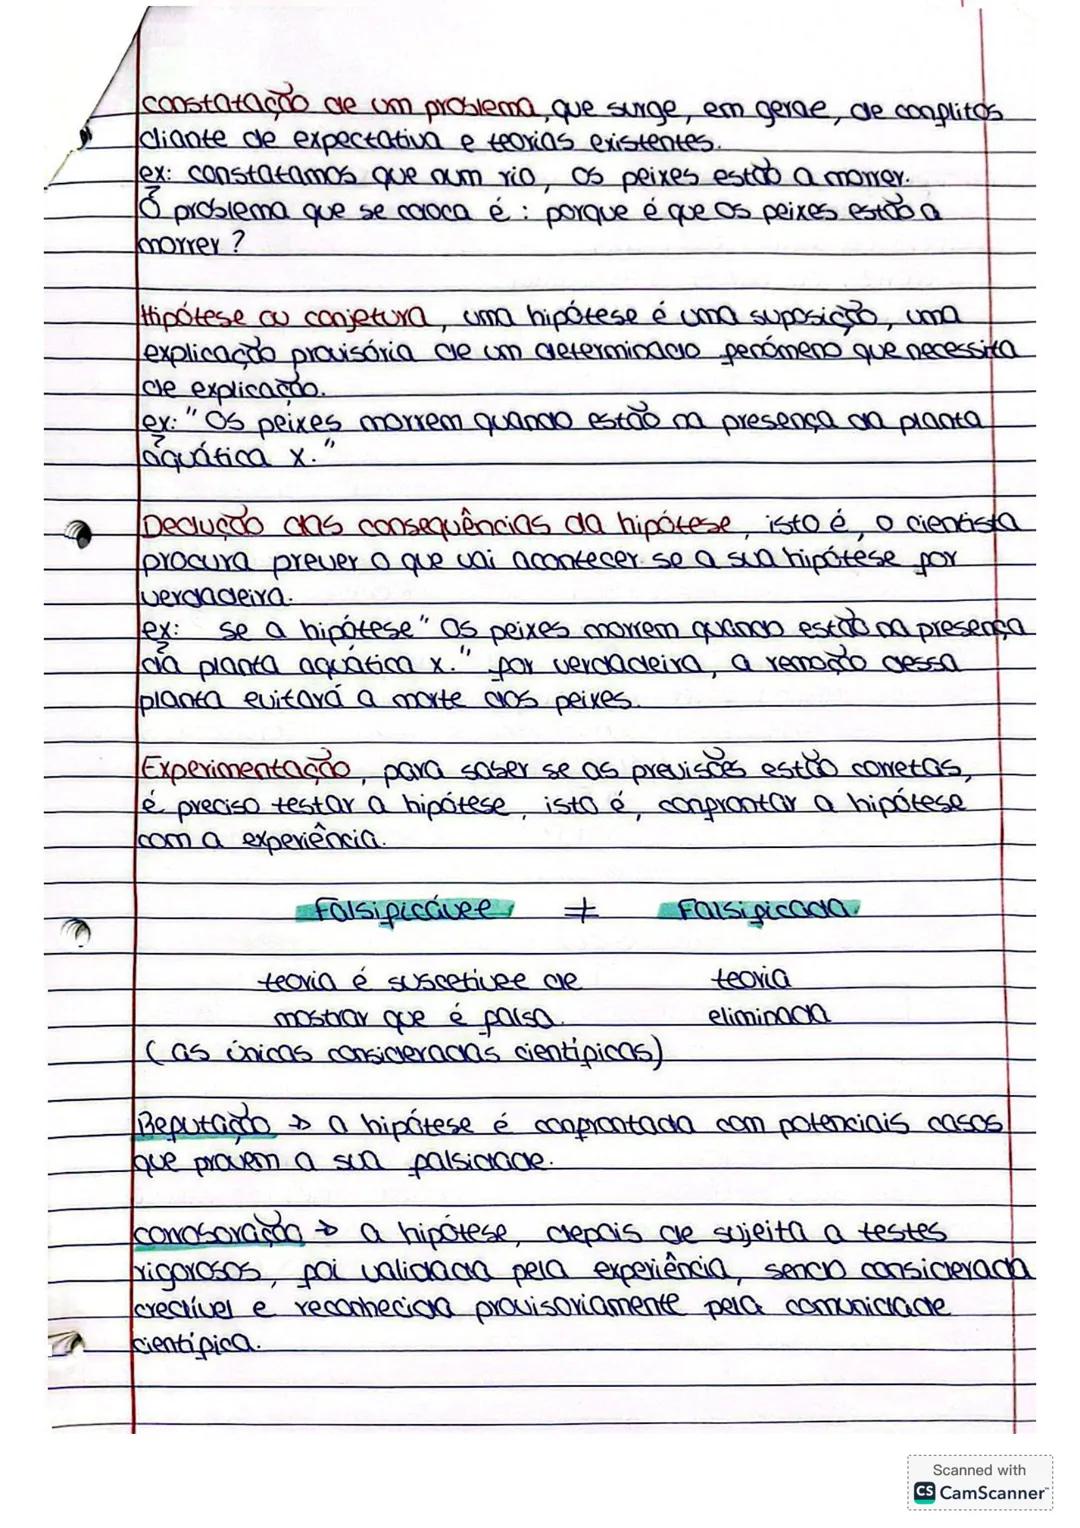 constatação de um problema, que surge, em geral, de conflitos
diante de expectativa e teorias existentes.
ex: constatamos que num rio, os peixes estão a morrer.
O problema que se coloca é: porque é que os peixes estão a
morrer?
Hipótese ou conjetura, uma hipótese é uma suposição, uma
explicação provisória de um determinado fenómeno que necessita
de explicação.
ex: "Os peixes morrem quando estão na presença da planta
aquática x."
Dedução das consequências da hipótese, isto é, o cientista
procura prever o que vai acontecer se a sua hipótese for
verdadeira.
ex: se a hipótese "Os peixes morrem quando estão na presença
da planta aquática x." for verdadeira, a remoção dessa
planta evitará a morte dos peixes.
Experimentação, para saber se as previsões estão corretas,
é preciso testar a hipótese, isto é, confrontar a hipótese
com a experiência.
Falsificável ≠ Falsificada
teoria é suscetivel de teoria
mostrar que é falsa. eliminada
(as únicas consideradas científicas)
Refutação → a hipótese é confrontada com potenciais casos
que provem a sua falsidade.
corroboração → a hipótese, depois de sujeita a testes
rigorosos, foi validada pela experiência, sendo considerada
credível e reconhecida provisoriamente pela comunidade
científica.
Scanned with
CS CamScanner